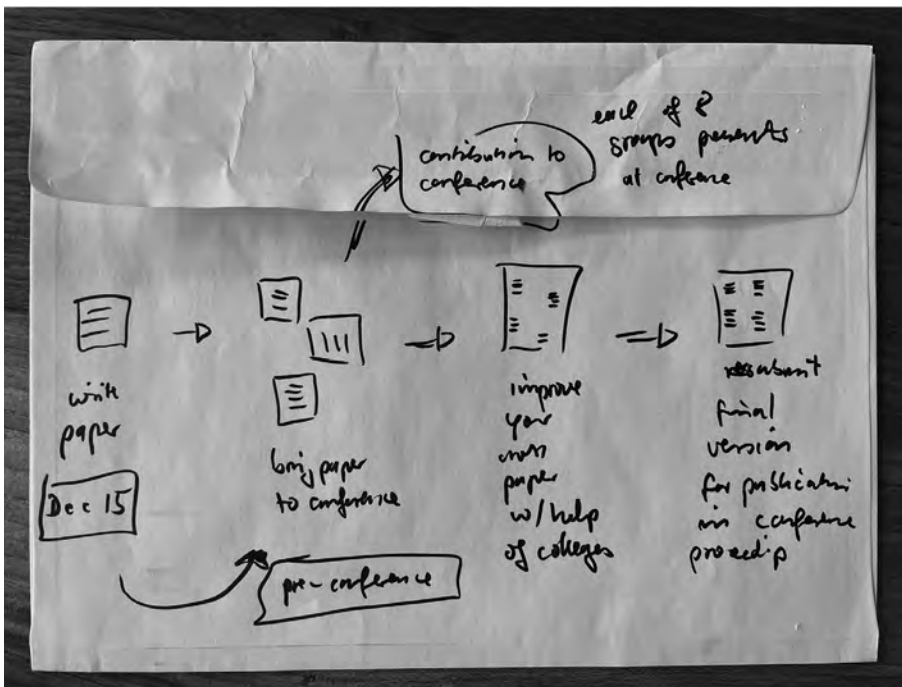 contribution to
conference
each of 8
groups presents
at conference
write
paper
Dec 15
bring paper
to conference
pre-conference
improve
your
own
paper
w/help
of colleges
resubmit
final
version
for publication
in conference